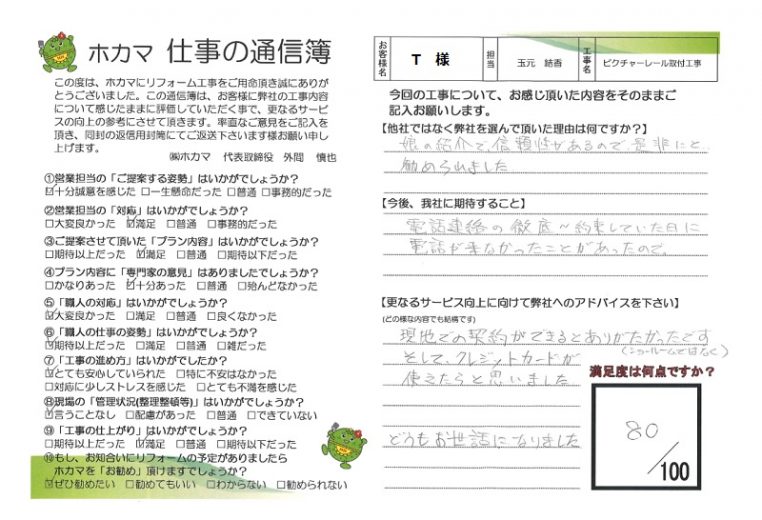 ホカマ 仕事の通信簿
この度は、ホカマにリフォーム工事をご用命頂き誠にありが
とうございました。この通信簿は、お客様に弊社の工事内容
について感じたままに評価していただく事で、更なるサービ
スの向上の参考にさせて頂きます。率直なご意見をご記入を
頂き、同封の返信用封筒にてご返送下さいます様お願い申し
上げます。
㈱ホカマ 代表取締役 外間 慎也
①営業担当の「ご提案する姿勢」はいかがでしょうか？
☑十分誠意を感じた □一生懸命だった □普通 □事務的だった
②営業担当の「対応」はいかがでしょうか？
□大変良かった ☑満足 □普通 □事務的だった
③ご提案させて頂いた「プラン内容」はいかがでしょうか？
□期待以上だった ☑満足 □普通 □期待以下だった
④プラン内容に「専門家の意見」はありましたでしょうか？
□かなりあった ☑十分あった □普通 □殆んどなかった
⑤「職人の対応」はいかがでしょうか？
☑大変良かった □満足 □普通 □良くなかった
⑥「職人の仕事の姿勢」はいかがでしょうか？
☑期待以上だった □満足 □普通 □雑だった
⑦「工事の進め方」はいかがでしたか？
☑とても安心していられた □特に不安はなかった
□対応に少しストレスを感じた □とても不満を感じた
⑧現場の「管理状況(整理整頓等)」はいかがでしょうか？
☑言うことなし □配慮があった □普通 □できていない
⑨「工事の仕上がり」はいかがでしょうか？
□期待以上だった ☑満足 □普通 □期待以下だった
⑩もし、お知合いにリフォームの予定がありましたら
ホカマを「お勧め」頂けますでしょうか？
☑ぜひ勧めたい □勧めてもいい □わからない □勧められない
お客様名 T 様 担当 玉元 結香 工事名 ピクチャーレール取付工事
今回の工事について、お感じ頂いた内容をそのままご
記入お願いします。
【他社ではなく弊社を選んで頂いた理由は何ですか？】
娘の紹介で、信頼性があるので是非にと
勧められました
【今後、我社に期待すること】
電話連絡の徹底～約束していた日に
電話が来なかったことがあったので。
【更なるサービス向上に向けて弊社へのアドバイスを下さい】
(どの様な内容でも結構です)
現地での契約ができるとありがたかったです
(ショールームではなく)
そして、クレジットカードが
使えたらと思いました
どうもお世話になりました
満足度は何点ですか？
80
/100